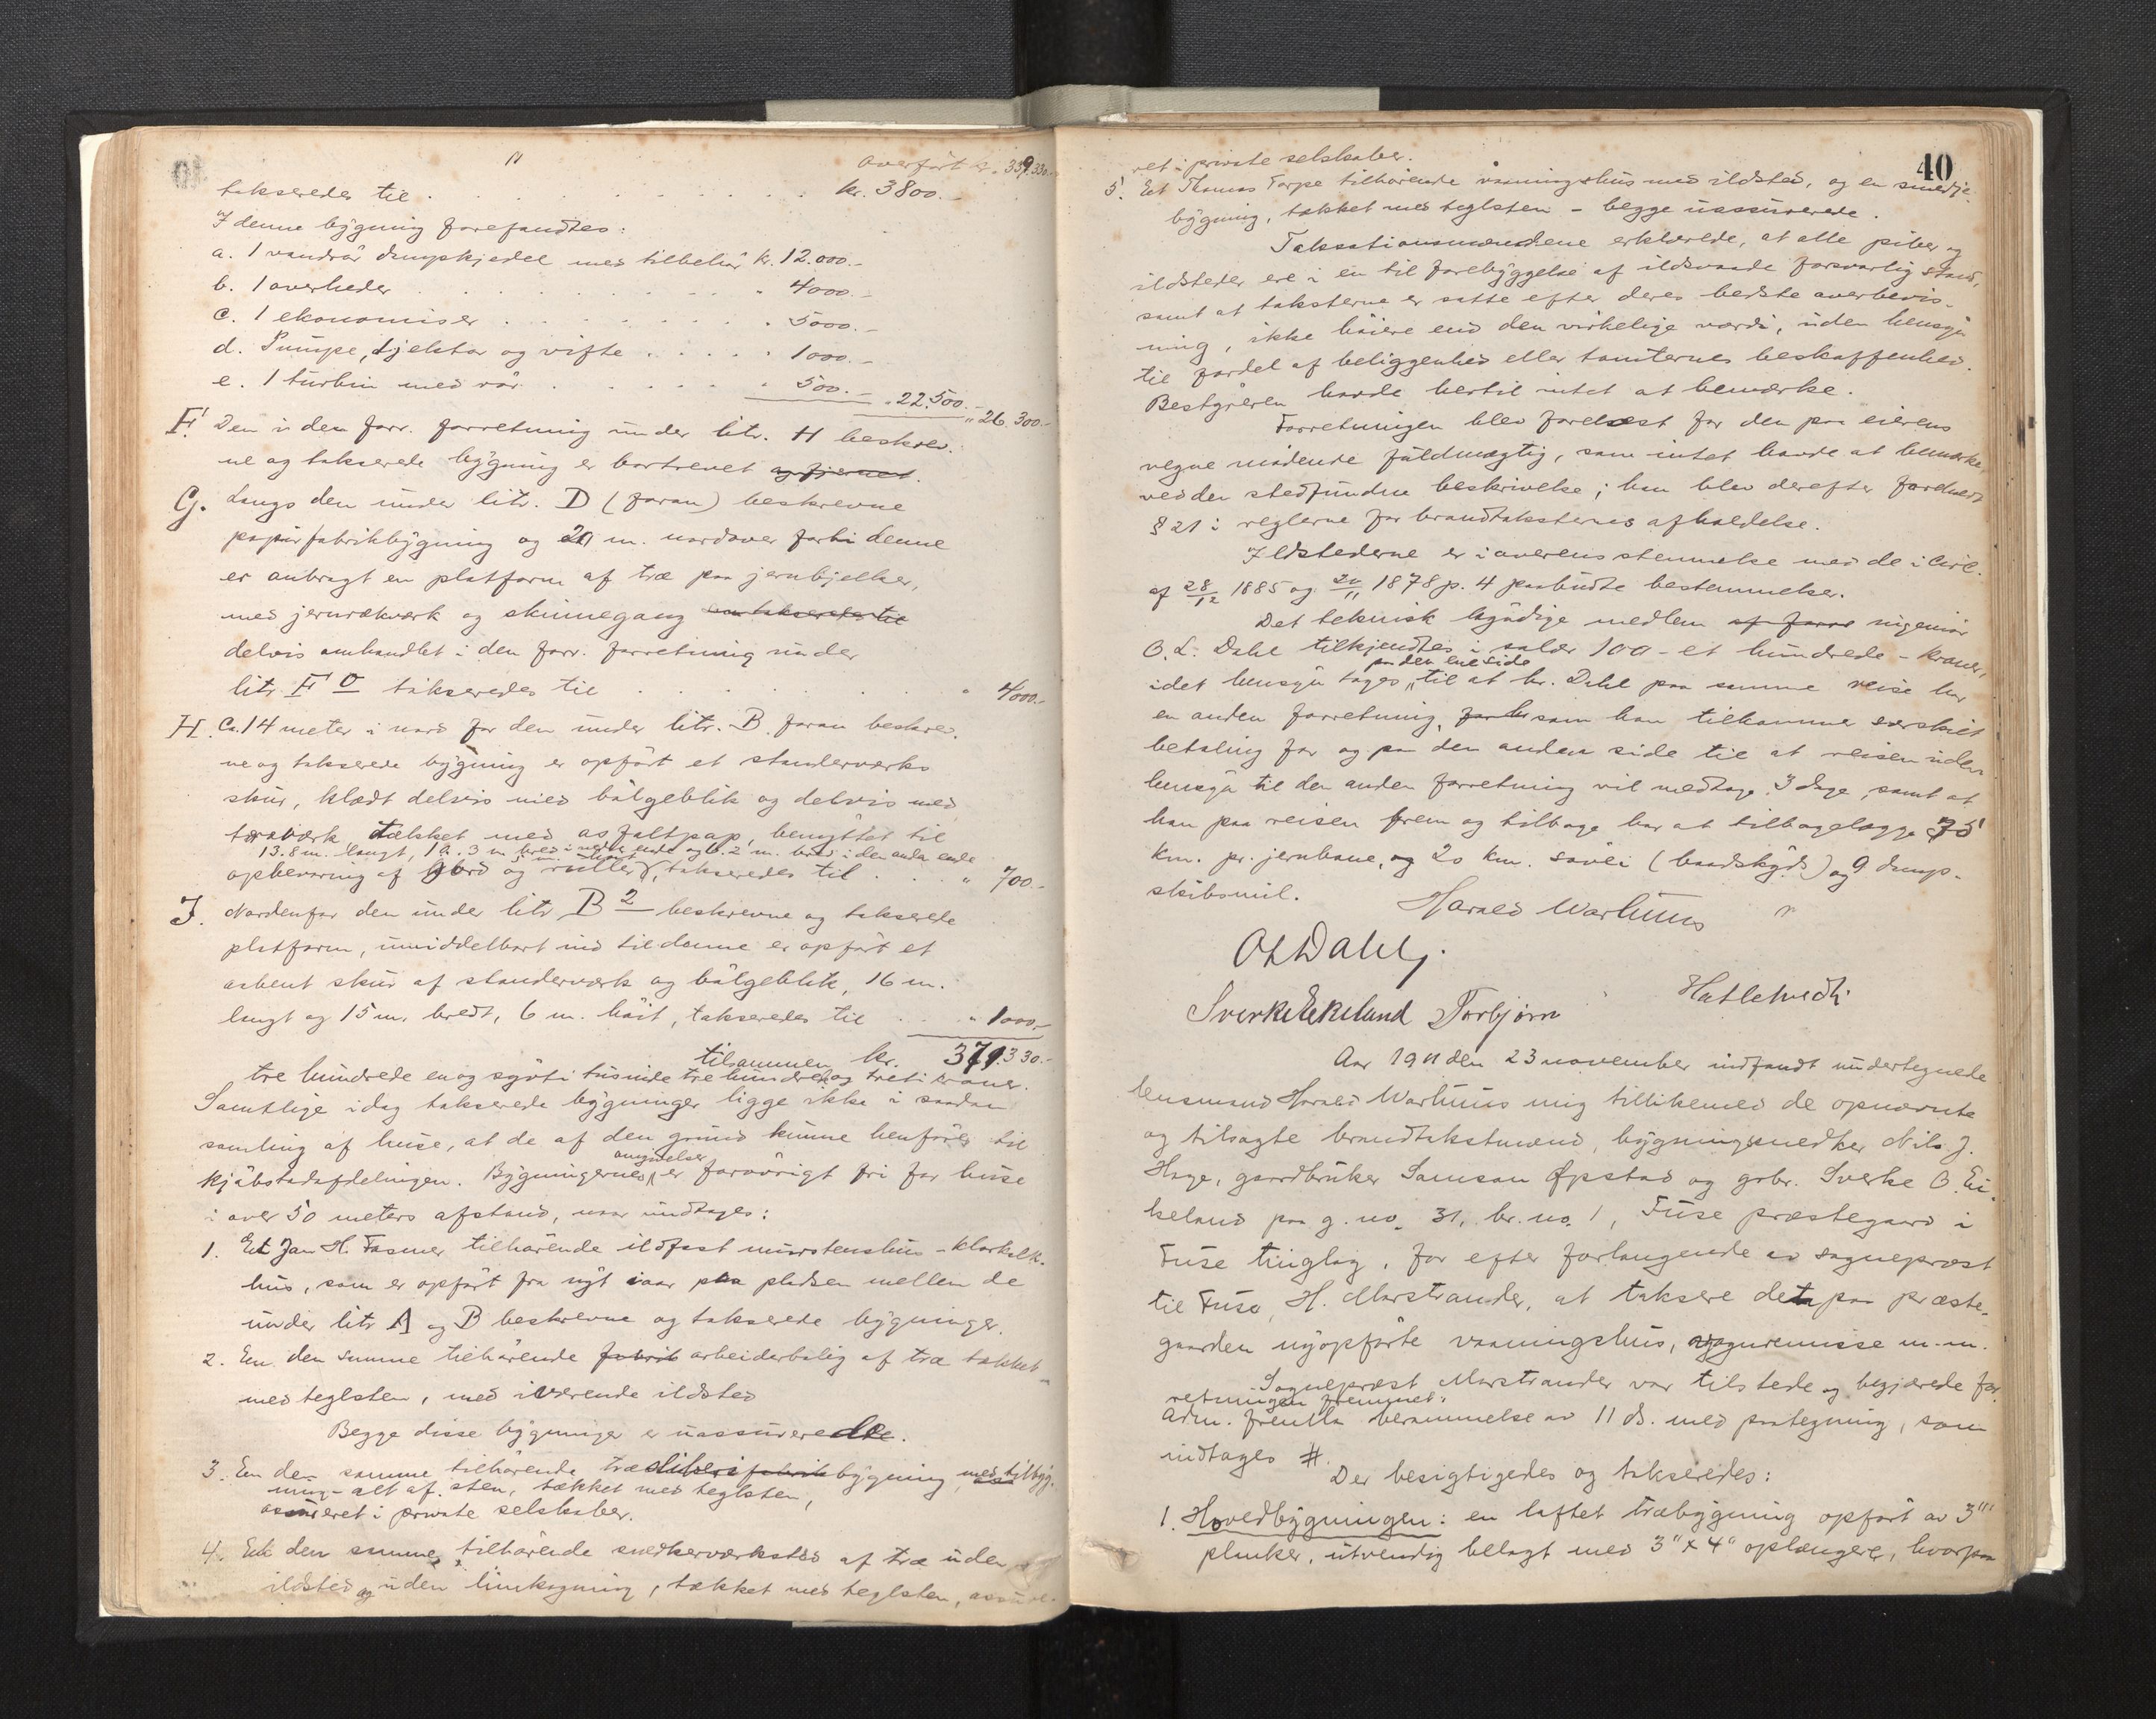 Overført kr. 339.330.-
takseredes til . . . . . . . . kr. 3800.-
I denne bygning forefandtes:
a. 1 vandrør dampkjedel med tilbehør kr. 12.000.-
b. 1 overheder . . . . . . . " 4000.-
c. 1 ekonomiser . . . . . . . " 5000.-
d. Pumpe, ejektor og vifte . . . . " 1000.-
e. 1 turbin med rør . . . . . . " 500.- " 22.500.- " 26.300.-
F. Den i den forr. forretning under litr. H beskrev-
ne og takserede bygning er bortrevet og fjernet.
G. Langs den under litr. D (foran) beskrevne
papirfabrikbygning og 20 m. nordover forbi denne
er anbragt en platform af træ paa jernbjelker,
med jernrækværk og skinnegang som takseredes til
delvis omhandlet i den forr. forretning under
litr. F o takseredes til . . . . . . . . " 4000.-
H. Ca. 14 meter i nord for den under litr. B. foran beskrev-
ne og takserede bygning er opført et standerværks
skur, klædt delvis med bølgeblik og delvis med
træværk, tækket med asfaltpap, benyttet til
13.8 m. langt, 1 h. 3 m. bred i nedre ende og b. 2 m. bred i den anden ende
opbevaring af bord og ruller, takseredes til . . . " 700.-
I. Nordenfor den under litr B 2 beskrevne og takserede
platform, umiddelbart ind til denne er opført et
aabent skur af standerværk og bølgeblik, 16 m.
langt og 15 m. bredt, 6 m. høit, takseredes til . . " 1000.-
tilsammen kr. 371.330.-
tre hundrede en og sytti tusinde tre hundrede og treti kroner.
Samtlige idag takserede bygninger ligge ikke i saadan
samling af huse, at de af den grund kunne henføres til
kjøbstadafdelingen. Bygningernes omgivelser er forøvrigt fri for huse
i over 50 meters afstand, naar undtages:
1. Et Joh H. Fasmer tilhørende ildfast murstenshus - klorkalk-
hus, som er opført fra nyt iaar paa pladsen mellem de
under litr A og B beskrevne og takserede bygninger.
2. En den samme tilhørende fabrik arbeiderbolig af træ tækket
med teglsten, med iværende ildsted
Begge disse bygninger er uassurerede.
3. En den samme tilhørende træsliberi fabrik bygning, med tilbyg-
ning - alt af sten, tækket med teglsten,
assureret i private selskaber.
4. Et den samme tilhørende snedkerværksted af træ uden
ildsted og uden limkogning, tækket med teglsten, assure-
40
ret i private selskaber.
5. Et Thomas Torpe tilhørende vaaningshus med ildsted, og en smedje-
bygning, tækket med teglsten - begge uassurerede.
Taksationsmændene erklærede, at alle piber og
ildsteder ere i en til forebyggelse af ildsvaade forsvarlig stand,
samt at taksterne er satte efter deres bedste overbevis-
ning, ikke høiere end den virkelige værdi, uden hensyn
til fordel af beliggenhed eller tomternes beskaffenhed.
Bestyreren havde hertil intet at bemærke.
Forretningen blev forelæst for den paa eierens
vegne mødende fuldmægtig, som intet havde at bemærke
ved den stedfundne beskrivelse; han blev derefter forelæst
§ 21 i reglerne for brandtaksternes afholdelse.
Ildstederne er i overensstemmelse med de i Circ.
af 28/12 1885 og 20/11 1878 p. 4 paabudte bestemmelser.
Det teknisk kyndige medlem af forre ingeniør
O. L. Dahl tilkjendtes i salær 100 - et hundrede - kroner,
idet hensyn tages paa den ene side til at hr. Dahl paa samme reise har
en anden forretning, for h som han tilkommer særskilt
betaling for og paa den anden side til at reisen uden
hensyn til den anden forretning vil medtage 3 dage, samt at
han paa reisen frem og tilbage har at tilbagelægge 75
km. pr. jernbane, og 20 km. søvei (baadskyds) og 9 damp-
skibsmil.
Harald Warhuus
O L Dahl.
Sverke Ekeland Torbjørn Hatlehvedt
Aar 1911 den 23 november indfandt undertegnede
lensmand Harald Warhuus mig tillikemed de opnævnte
og tilsagte brandtakstmænd, bygningssnedker Nils J.
Hage, gaardbruker Samson Øpstad og grbr. Sverke O. Ei-
keland paa g. no. 31, br. no. 1, Fuse præstegaard i
Fuse tinglag, for efter forlangende av sogneprest
til Fuse, H. Marstrander, at taksere det paa præste-
gaarden nyopførte vaaningshus, vognremisse m.m.
Sogneprest Marstrander var tilstede og begjærede for-
retningen fremmet.
Adm. fremla berammelse av 11 ds. med paategning, som
indtages #.
Der besigtigedes og takseredes:
1. Hovedbygningen: en laftet træbygning opført av 3"
planker, utvendig belagt med 3" x 4" oplængere, hvorpaa